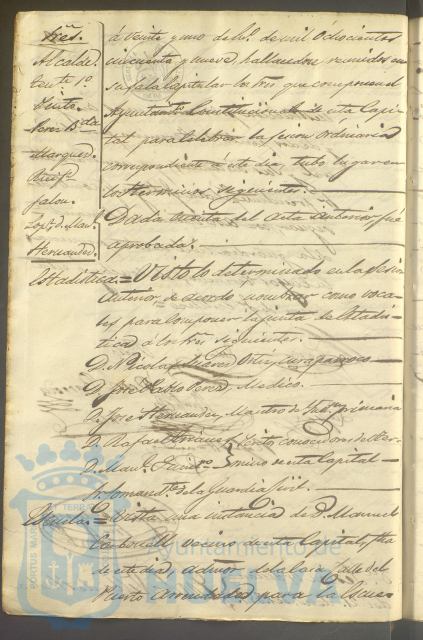 Sres.
Alcalde.
Tente. 1º
Perez
Marquez.
Hernandez.
á veinte y uno de de mil Ochocientos
cincuenta y nueve, hallandose reunidos en
su sala Capitular los Sres. que componen el
Ayuntamto. Constitucional de esta Capi-
tal para celebrar la sesion Ordinaria
correspondiente á este dia tubo lugar en
los terminos siguientes.
Dada cuenta del acta anterior fué
aprobada.
Estadistica = Visto lo determinado en la sesion
anterior, se acordó nombrar como voca-
les para componer la junta de Estadis-
tica á los Sres. siguientes.
D. Nicolas Ortiz, cura parroco
D. José Pablo Perez Medico.
D. José Hernandez, Maestro de primaria
D. Rafael Peritos conocedores del ter-
D. Manl. mino de esta Capital
Sr. Comandte. de la Guardia Civil.
Escuela = Vista una instancia de D. Manuel
Carbonell vecino de esta Capital, fha.
de este dia, dueño de la casa, calle del
Puerto arrendada para la Escue-
PORTUS MARIS ET TERRAE
Ayuntamiento de
HUELVA